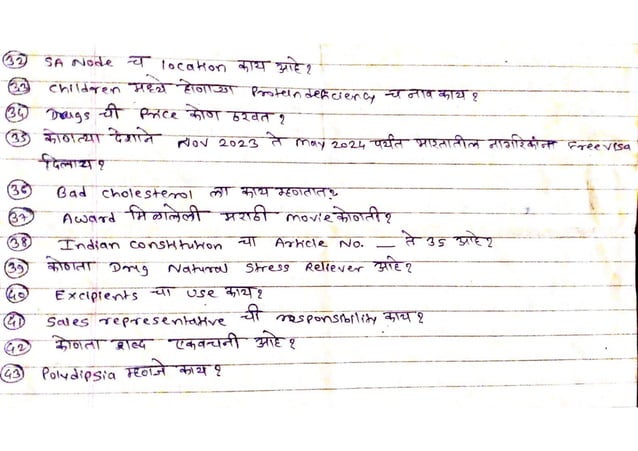 32) SA Node च location काय आहे?
33) Children मध्ये होणाऱ्या Protein deficiency च नाव काय?
34) Drugs ची Price कोण ठरवत?
35) कोणत्या देशाने Nov 2023 ते May 2024 पर्यंत भारतातील नागरिकांना Free visa
दिलाय?
36) Bad cholesterol ला काय म्हणतात?
37) Award मिळालेली मराठी movie कोणती?
38) Indian constitution चा Article No. — ते 35 आहे?
39) कोणता Drug Natural Stress Reliever आहे?
40) Excipients चा use काय?
41) Sales representative ची responsibility काय?
42) कोणता शब्द एकवचनी आहे?
43) Polydipsia म्हणजे काय?